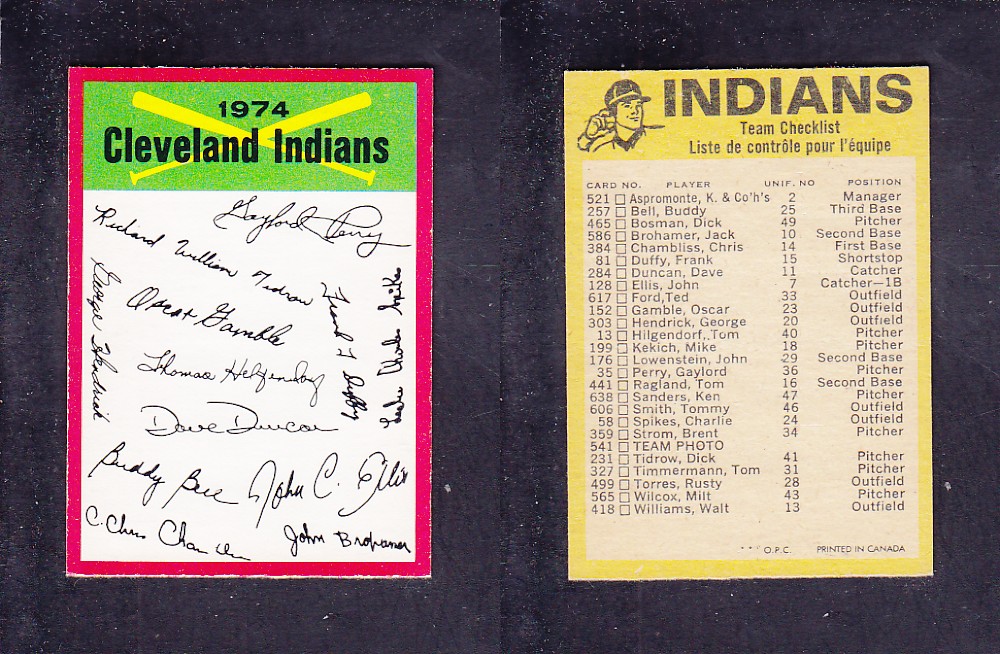 1974
Cleveland Indians
Gaylord Perry
Richard William Tidrow
George Hendrick
Oscar Gamble
Frank T Duffy
Leslie Charles Spikes
Thomas Hilgendorf
Dave Duncan
Buddy Bell
John C. Ellis
C. Chris Cham
John Brohamer
INDIANS
Team Checklist
Liste de contrôle pour l'équipe
CARD NO. PLAYER UNIF. NO POSITION
521 Aspromonte, K. & Co'h's 2 Manager
257 Bell, Buddy 25 Third Base
465 Bosman, Dick 49 Pitcher
586 Brohamer, Jack 10 Second Base
384 Chambliss, Chris 14 First Base
81 Duffy, Frank 15 Shortstop
284 Duncan, Dave 11 Catcher
128 Ellis, John 7 Catcher—1B
617 Ford, Ted 33 Outfield
152 Gamble, Oscar 23 Outfield
303 Hendrick, George 20 Outfield
13 Hilgendorf, Tom 40 Pitcher
199 Kekich, Mike 18 Pitcher
176 Lowenstein, John 29 Second Base
35 Perry, Gaylord 36 Pitcher
441 Ragland, Tom 16 Second Base
638 Sanders, Ken 47 Pitcher
606 Smith, Tommy 46 Outfield
58 Spikes, Charlie 24 Outfield
359 Strom, Brent 34 Pitcher
541 TEAM PHOTO
231 Tidrow, Dick 41 Pitcher
327 Timmermann, Tom 31 Pitcher
499 Torres, Rusty 28 Outfield
565 Wilcox, Milt 43 Pitcher
418 Williams, Walt 13 Outfield
***O.P.C. PRINTED IN CANADA